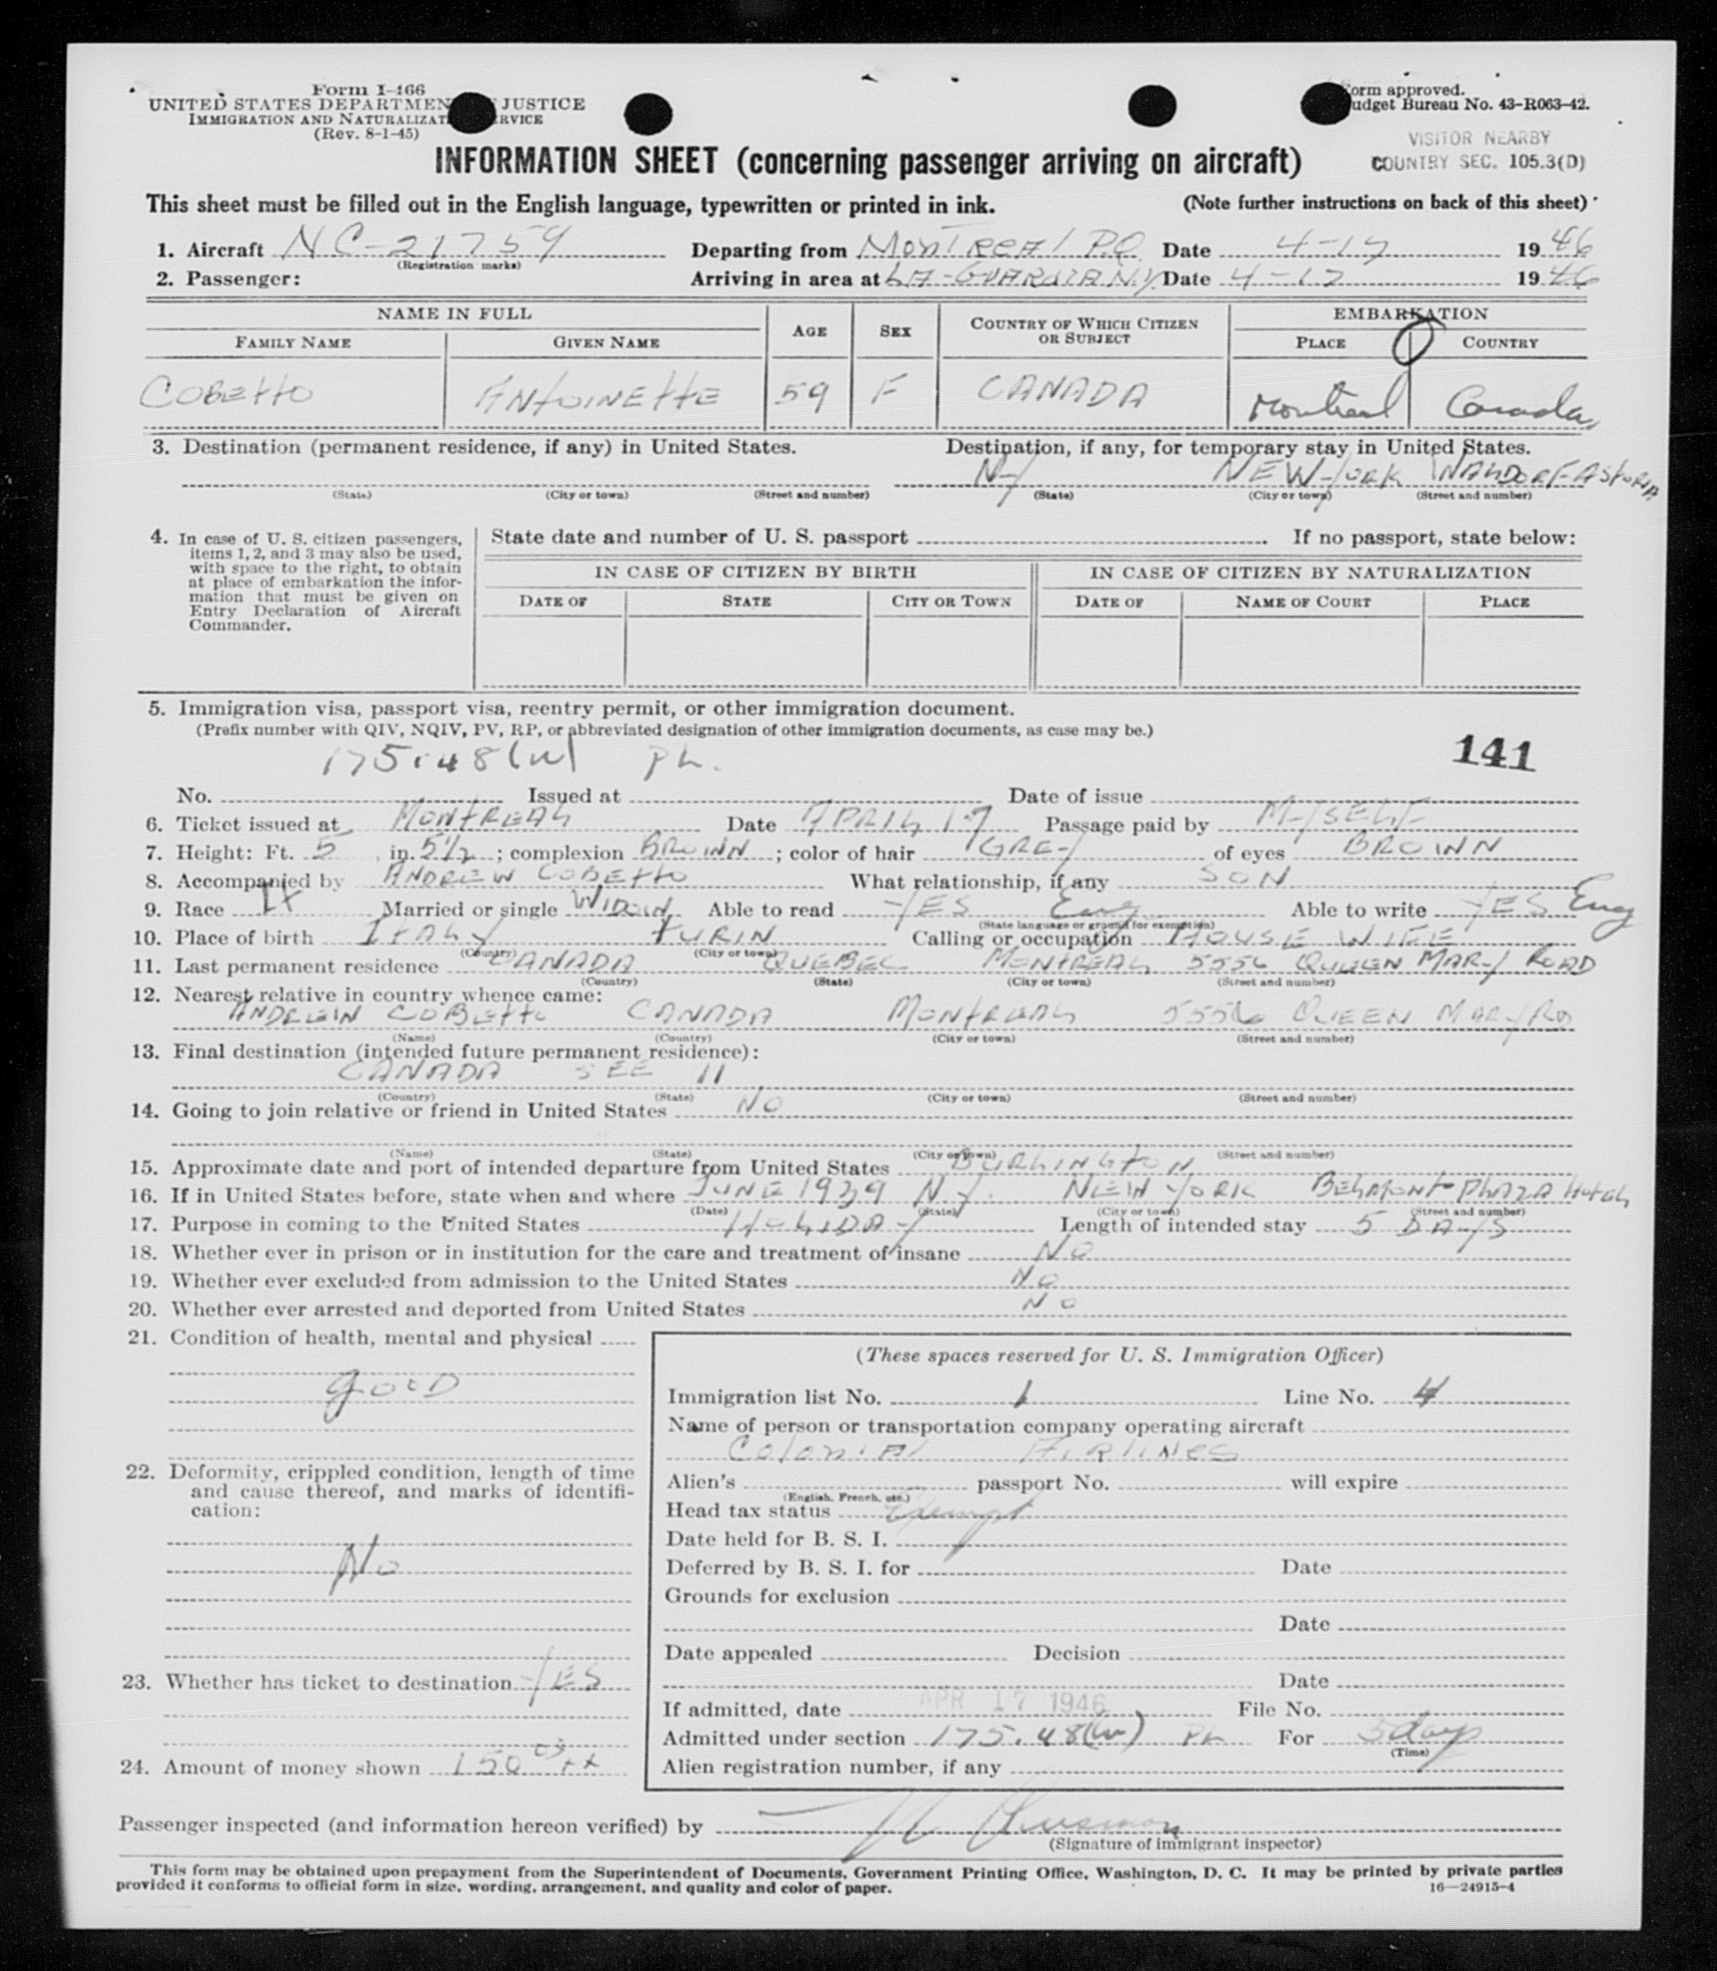 Form I-466
UNITED STATES DEPARTMEN JUSTICE
IMMIGRATION AND NATURALIZAT RVICE
(Rev. 8-1-45)
orm approved.
udget Bureau No. 43-R063-42.
VISITOR NEARBY
COUNTRY SEC. 105.3(D)
INFORMATION SHEET (concerning passenger arriving on aircraft)
This sheet must be filled out in the English language, typewritten or printed in ink. (Note further instructions on back of this sheet)
1. Aircraft NC-21759 Departing from MONTREAL P.Q. Date 4-17 1946
(Registration marks)
2. Passenger: Arriving in area at LA-GUARDIA N.Y. Date 4-17 1946
NAME IN FULL AGE SEX COUNTRY OF WHICH CITIZEN OR SUBJECT EMBARKATION
FAMILY NAME GIVEN NAME PLACE COUNTRY
COBETTO ANTOINETTE 59 F CANADA Montreal Canada
3. Destination (permanent residence, if any) in United States. Destination, if any, for temporary stay in United States.
NY NEW YORK WALDORF-ASTORIA
(State) (City or town) (Street and number) (State) (City or town) (Street and number)
4. In case of U. S. citizen passengers, items 1, 2, and 3 may also be used, with space to the right, to obtain at place of embarkation the information that must be given on Entry Declaration of Aircraft Commander.
State date and number of U. S. passport If no passport, state below:
IN CASE OF CITIZEN BY BIRTH IN CASE OF CITIZEN BY NATURALIZATION
DATE OF STATE CITY OR TOWN DATE OF NAME OF COURT PLACE
5. Immigration visa, passport visa, reentry permit, or other immigration document.
(Prefix number with QIV, NQIV, PV, RP, or abbreviated designation of other immigration documents, as case may be.)
175.48(w) Ph. 141
No. Issued at Date of issue
6. Ticket issued at MONTREAL Date APRIL 17 Passage paid by MYSELF
7. Height: Ft. 5 in. 5 1/2 ; complexion BROWN ; color of hair GREY of eyes BROWN
8. Accompanied by ANDREW COBETTO What relationship, if any SON
9. Race It Married or single WIDOW Able to read YES Eng Able to write YES Eng
(State language or ground for exemption)
10. Place of birth ITALY TURIN Calling or occupation HOUSE WIFE
(Country) (City or town)
11. Last permanent residence CANADA QUEBEC MONTREAL 5556 QUEEN MARY ROAD
(Country) (State) (City or town) (Street and number)
12. Nearest relative in country whence came:
ANDREW COBETTO CANADA MONTREAL 5556 QUEEN MARY RD
(Name) (Country) (City or town) (Street and number)
13. Final destination (intended future permanent residence):
CANADA SEE 11
(Country) (State) (City or town) (Street and number)
14. Going to join relative or friend in United States NO
(Name) (State) (City or town) (Street and number)
15. Approximate date and port of intended departure from United States BURLINGTON
16. If in United States before, state when and where JUNE 1939 N.Y. NEW YORK BELMONT PLAZA HOTEL
(Date) (State) (City or town) (Street and number)
17. Purpose in coming to the United States HOLIDAY Length of intended stay 5 DAYS
18. Whether ever in prison or in institution for the care and treatment of insane NO
19. Whether ever excluded from admission to the United States NO
20. Whether ever arrested and deported from United States NO
21. Condition of health, mental and physical
GOOD
22. Deformity, crippled condition, length of time and cause thereof, and marks of identification:
No
23. Whether has ticket to destination YES
24. Amount of money shown 150
(These spaces reserved for U. S. Immigration Officer)
Immigration list No. 1 Line No. 4
Name of person or transportation company operating aircraft
Colonial AIRLINES
Alien's passport No. will expire
(English, French, etc.)
Head tax status Exempt
Date held for B. S. I.
Deferred by B. S. I. for Date
Grounds for exclusion
Date
Date appealed Decision
Date
If admitted, date APR 17 1946 File No.
Admitted under section 175.48(w) Ph For 5 days
(Time)
Alien registration number, if any
Passenger inspected (and information hereon verified) by
(Signature of immigrant inspector)
This form may be obtained upon prepayment from the Superintendent of Documents, Government Printing Office, Washington, D. C. It may be printed by private parties
provided it conforms to official form in size, wording, arrangement, and quality and color of paper. 16—24915-4